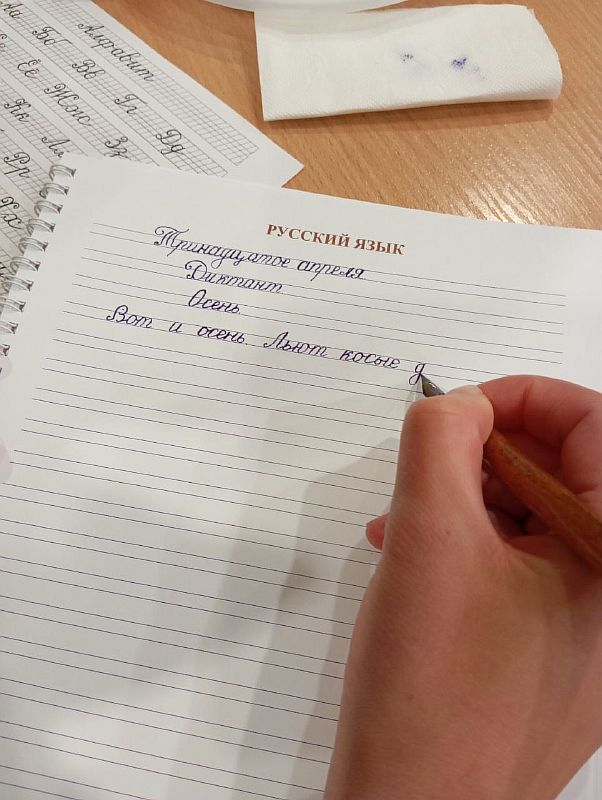 Алфавит
Аа Бб Вв Гг Дд
Её Жж Зз
Кк Лл
Рр
Хх
РУССКИЙ ЯЗЫК
Тринадцатое апреля
Диктант.
Осень.
Вот и осень. Льют косые д